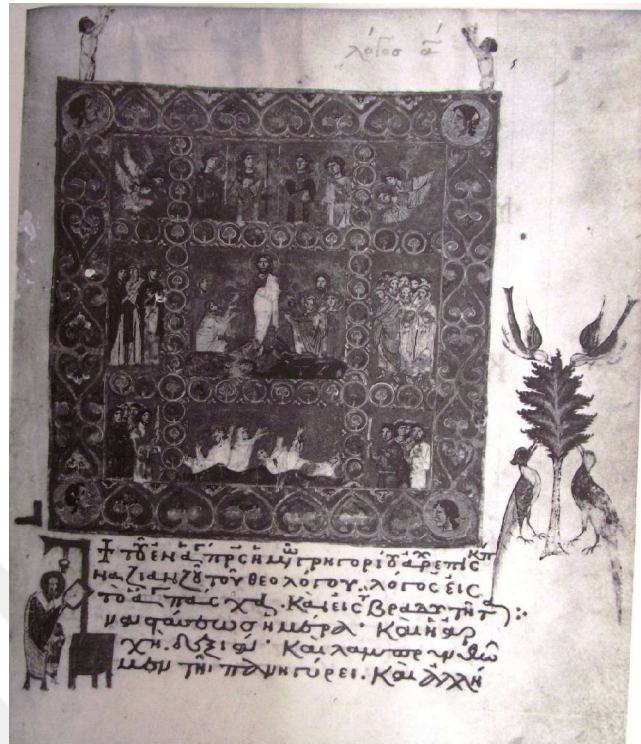 λόγος α
τοῦ ἐν ἁγ πρς ἡμω γρηγορίου ἀρεπισκπ
ναζιανζοῦ τοῦ θεολόγου. λόγος εἰς
τὸ α πάσχα. καὶ εἰς βραδυτητ :
ναστάσεως ἡμέρα· καὶ ἡ ἀρ
χὴ δεξιά· καὶ λαμπρυνθῶ
μεν τῆ πανηγύρει. καὶ ἀλλή